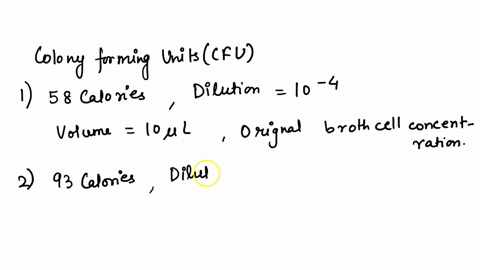 Colony forming Units (CFU)
1) 58 Calories , Dilution = 10⁻⁴
Volume = 10 μL , Orignal broth cell concent-
ration.
2) 93 Calories , Dilul